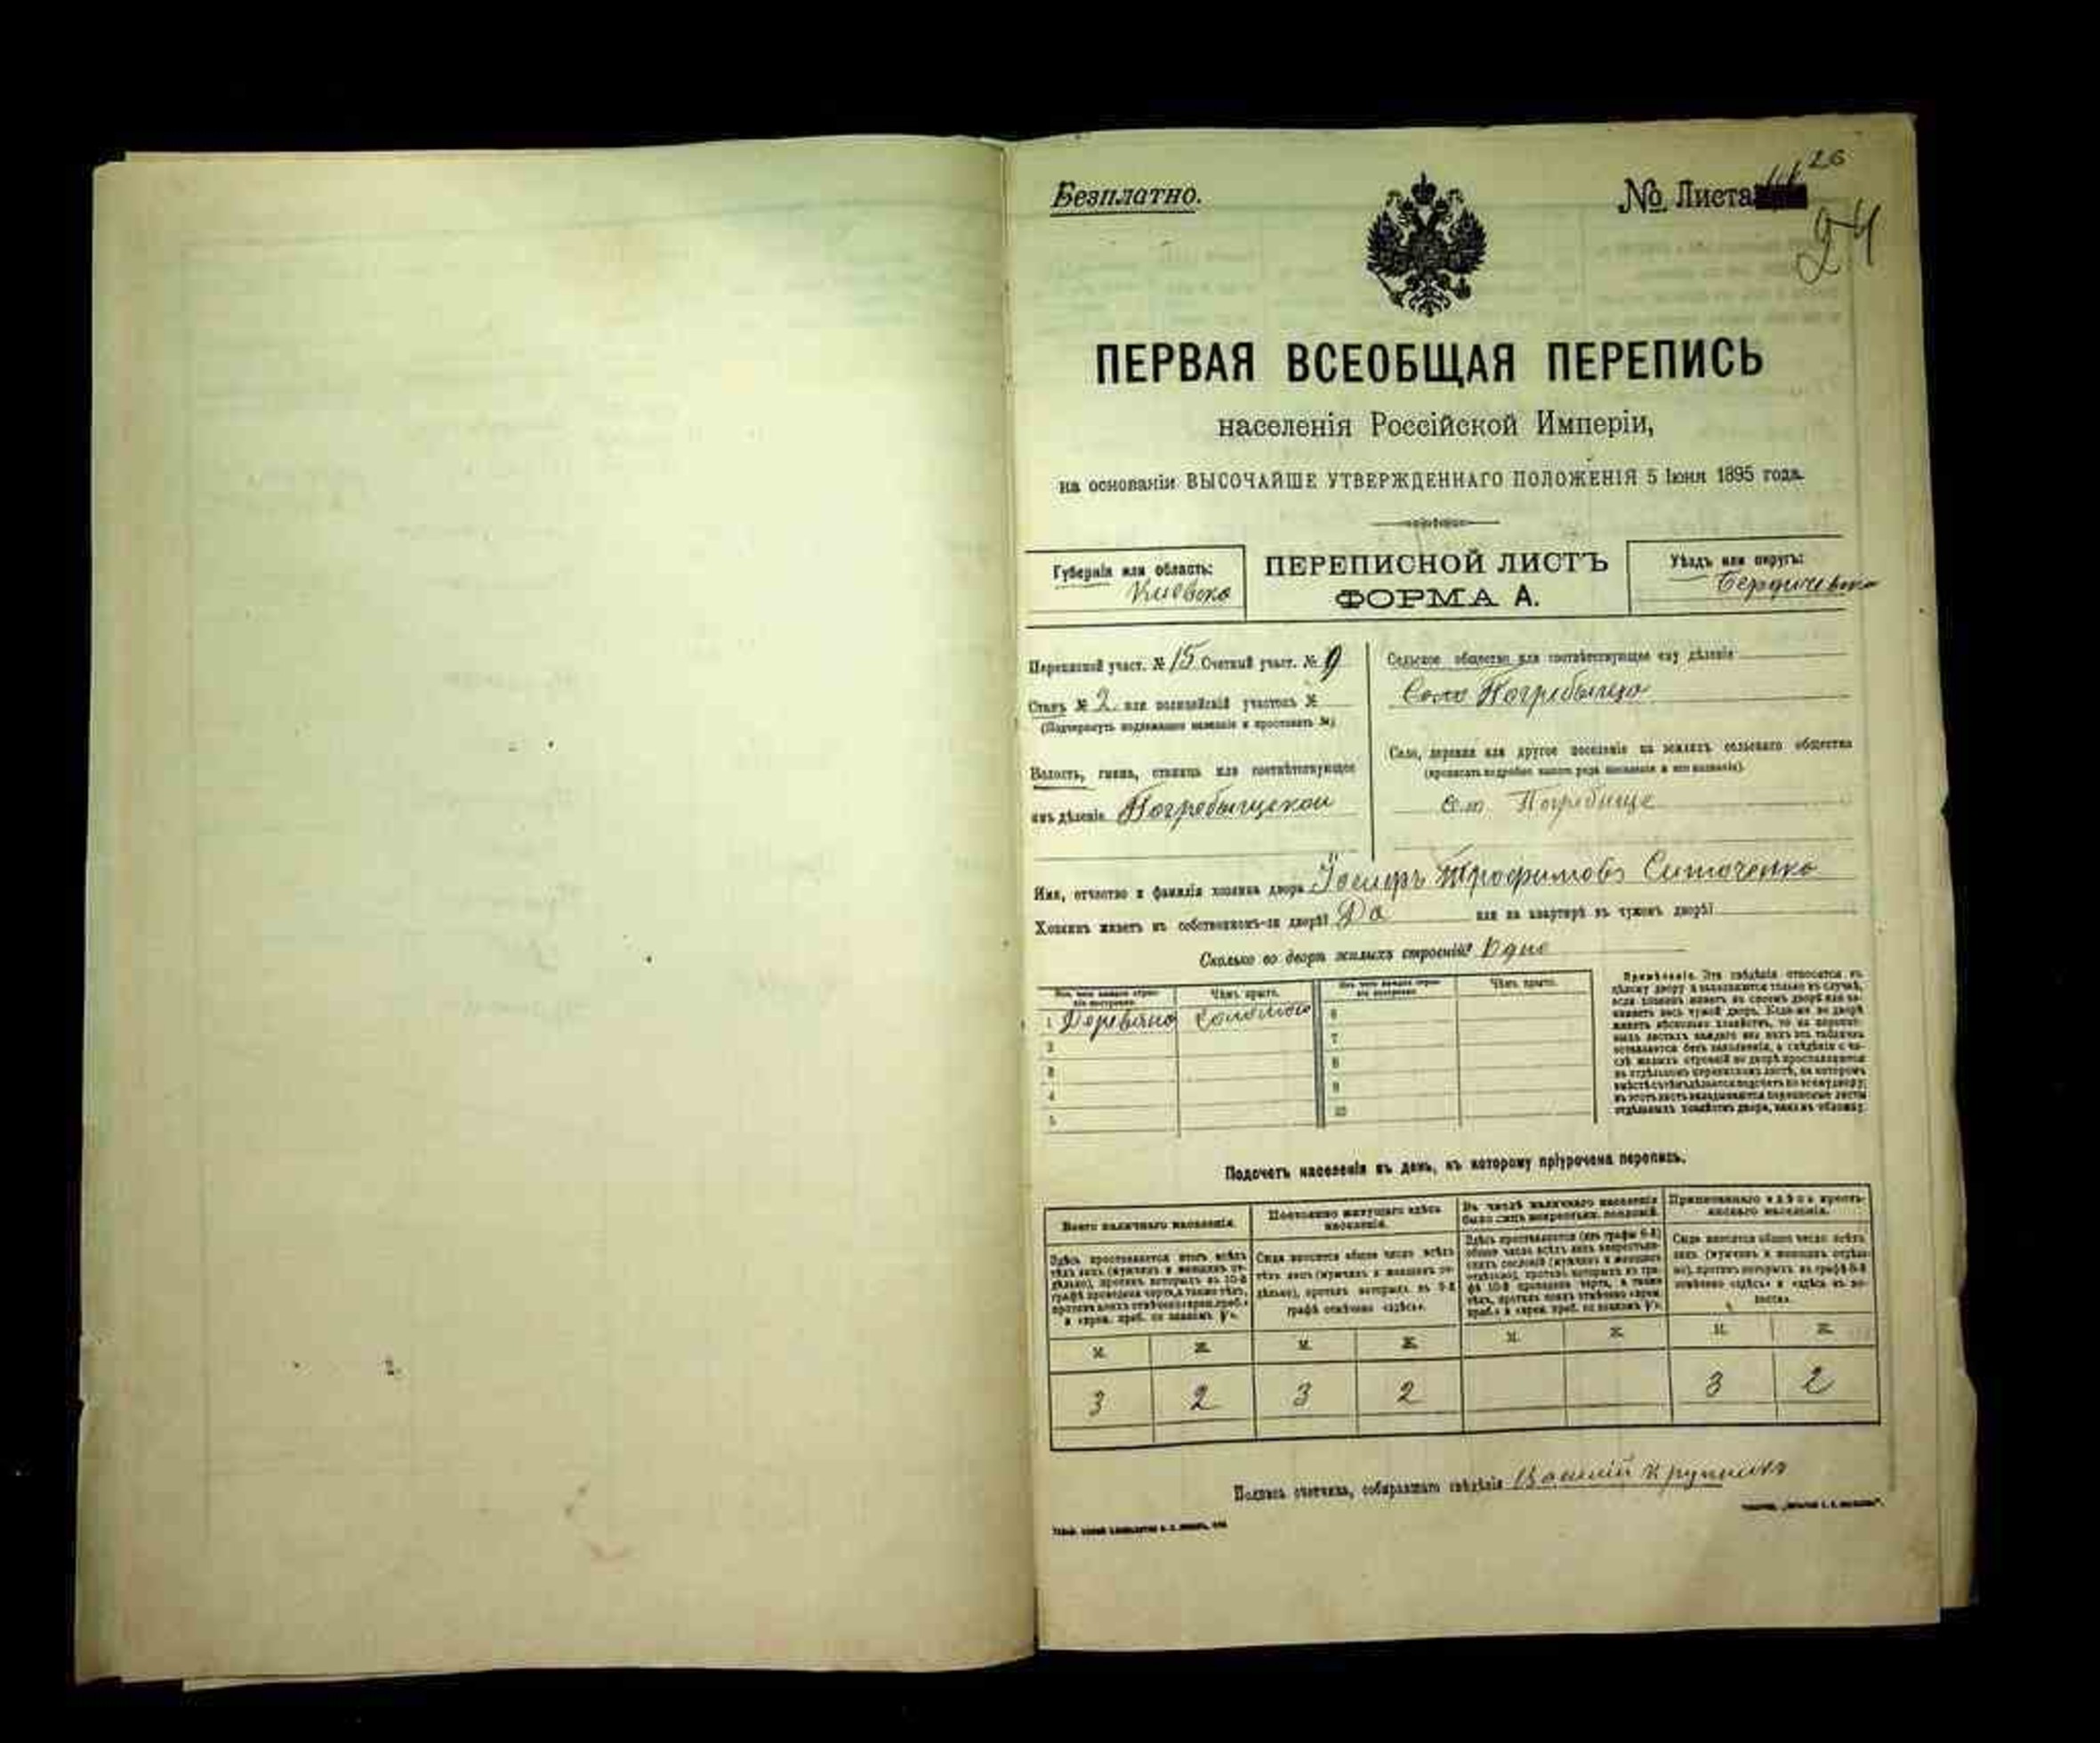 Безплатно.
№ Листа
26
24
ПЕРВАЯ ВСЕОБЩАЯ ПЕРЕПИСЬ
населенія Россійской Имперіи,
на основаніи ВЫСОЧАЙШЕ УТВЕРЖДЕННАГО ПОЛОЖЕНІЯ 5 Іюня 1895 года.
Губернія или область:
Киевска
ПЕРЕПИСНОЙ ЛИСТЪ
ФОРМА А.
Уѣздъ или округъ:
Бердичевска
Переписной участ. № 15 Счетный участ. № 9
Станъ № 2 или полицейскій участокъ №
(Подчеркнуть подлежащее названіе и проставить №)
Волость, гмина, станица или соотвѣтствующее
имъ дѣленіе Погребыщекои
Сельское общество или соотвѣтствующее ему дѣленіе
Село Погребыще
Село, деревня или другое поселеніе на земляхъ сельскаго общества
(прописать подробно какого рода поселеніе и его названіе).
Село Погребище
Имя, отчество и фамилія хозяина двора Іосифъ Трофимовъ
Хозяинъ живетъ въ собственномъ-ли дворѣ? Да или на квартирѣ въ чужомъ дворѣ?
Сколько во дворѣ жилыхъ строеній? Одно
Изъ чего каждое строеніе построено. Чѣмъ крыто. Изъ чего каждое строеніе построено. Чѣмъ крыто.
1 Деревяно Соломою 6
2 7
3 8
4 9
5 10
Примѣчаніе. Эти свѣдѣнія относятся къ
цѣлому двору и заполняются только въ случаѣ,
если хозяинъ живетъ въ своемъ дворѣ или за-
нимаетъ весь чужой дворъ. Если-же во дворѣ
живетъ нѣсколько хозяйствъ, то на перепис-
ныхъ листахъ каждаго изъ нихъ эта табличка
оставляется безъ заполненія, а свѣдѣнія о чи-
слѣ жилыхъ строеній во дворѣ проставляются
на отдѣльномъ переписномъ листѣ, на которомъ
вмѣстѣ съ тѣмъ дѣлается подсчетъ по всему двору;
въ этотъ листъ вкладываются переписные листы
отдѣльныхъ хозяйствъ двора, какъ въ обложку.
Подсчетъ населенія въ день, къ которому пріурочена перепись.
Всего наличнаго населенія.
Здѣсь проставляется итогъ всѣхъ
тѣхъ лицъ (мужчинъ и женщинъ от-
дѣльно), противъ которыхъ въ 10-й
графѣ проведена черта, а также тѣхъ,
противъ коихъ отмѣчено «врем. преб.»
Постоянно живущаго здѣсь
населенія.
Сюда вносится общее число всѣхъ
тѣхъ лицъ (мужчинъ и женщинъ от-
дѣльно), противъ которыхъ въ 9-й
графѣ отмѣчено «здѣсь».
Въ числѣ наличнаго населенія
было лицъ некрестьян. сословій.
Приписаннаго здѣсь кресть-
янскаго населенія.
Сюда вносится общее число всѣхъ
лицъ (мужчинъ и женщинъ отдѣль-
но), противъ которыхъ въ графѣ 8-й
отмѣчено «здѣсь» и «здѣсь въ во-
лости».
М. Ж. М. Ж. М. Ж. М. Ж.
3 2 3 2 3 2
Подпись счетчика, собиравшаго свѣдѣнія Василій